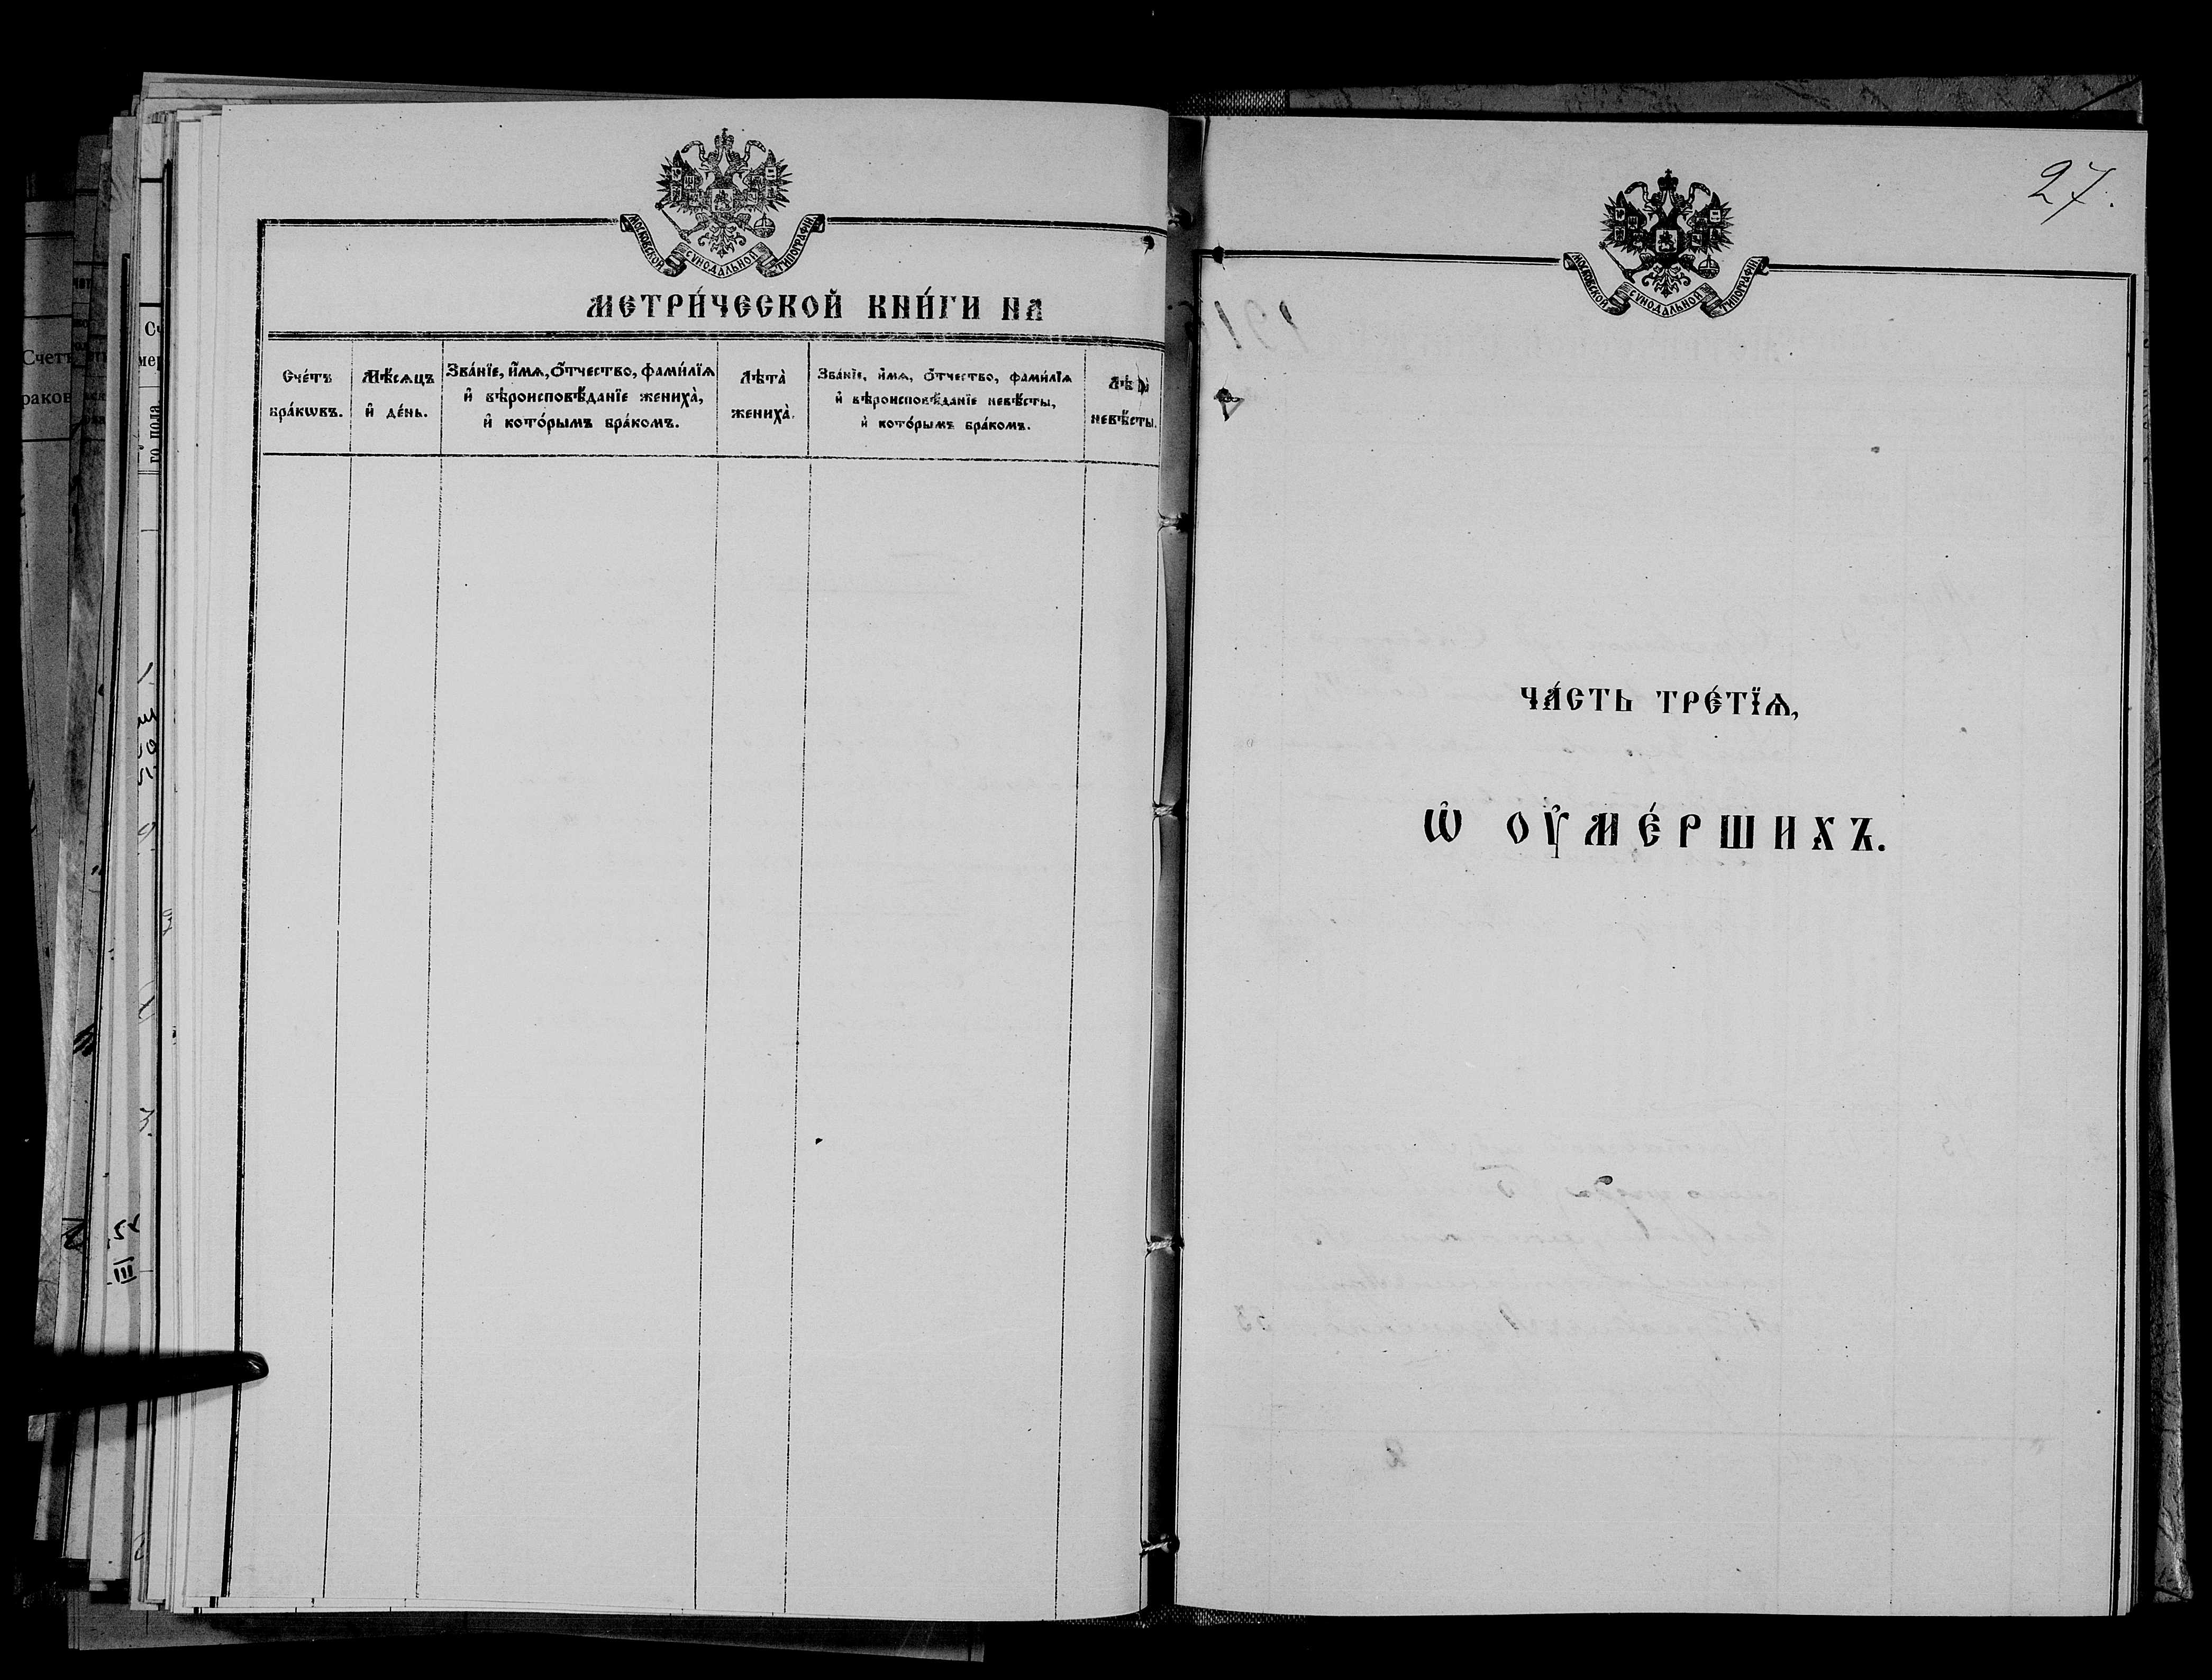 МОСКОВСКОЙ СѴНОДАЛЬНОЙ ТИПОГРАФІИ
МЕТРИ́ЧЕСКОЙ КНИ́ГИ НА
Сче́тъ бра́кѡвъ.
Мѣ́сѧцъ и҆ де́нь.
Зва́нїе, и҆́мѧ, ѻ҆́тчество, фами́лїѧ
и҆ вѣроисповѣ́данїе жениха̀,
и҆ кото́рымъ бра́комъ.
Лѣта̀ жениха̀.
Зва́нїе, и҆́мѧ, ѻ҆́тчество, фами́лїѧ
и҆ вѣроисповѣ́данїе невѣ́сты,
и҆ кото́рымъ бра́комъ.
невѣ́сты.
27.
МОСКОВСКОЙ СѴНОДАЛЬНОЙ ТИПОГРАФІИ
ЧА́СТЬ ТРЕ́ТЇѦ,
Ѡ҆ ОУ҆МЕ́РШИХЪ.